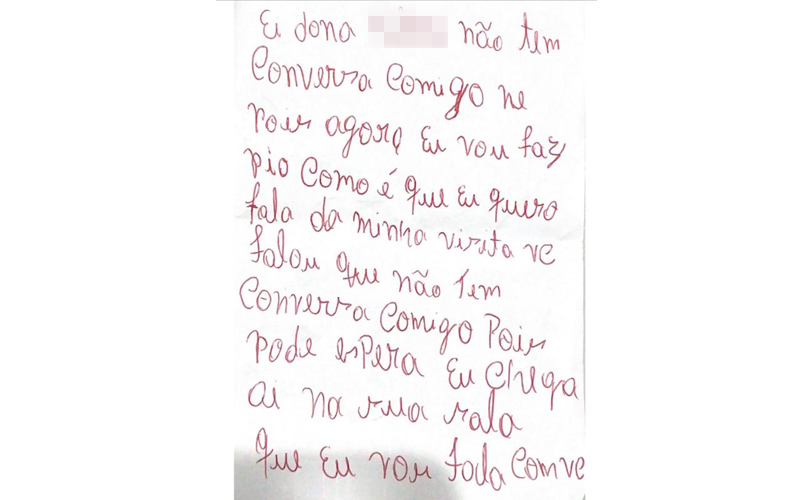 Ei dona não tem
Conversa Comigo ne
Pois agora Eu vou faz
pio Como é que Eu quero
fala da minha visita vc
falou que não tem
Conversa Comigo Pois
pode esPera Eu Chega
ai na sua sala
que Eu vou foda Com vc